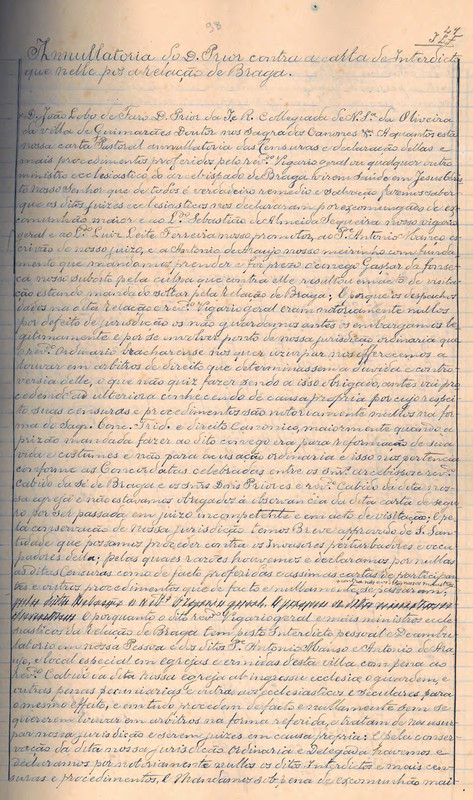 98
27
Annullatoria do D. Prior contra a carta de Interdicto
que nelle pôs a relação de Braga.
D. João Lobo de Faro D. Prior da I. e R. Collegiada de N. Sr.ª da Oliveira
da villa de Guimarães Doutor nos Sagrados Canones &. A quantos esta
nossa carta Pastoral annullatoria das Censuras e declaração dellas e
mais procedimentos proferidos pelo rev.do Vigario Geral ou qualquer outro
ministro ecclesiastico do arcebispado de Braga virem saude em Jesus Chris-
to nosso Senhor que de todos é verdadeiro remedio e salvação fazemos saber
que os ditos juizes ecclesiasticos nos declararam por excomungado de ex-
comunhão maior e ao L.do Sebastião de Almeida Sequeira nosso vigario
geral e ao L.do Luiz Leite Ferreira nosso promotor, ao P.e Antonio Affonso es-
crivão de nosso juizo, e a Antonio de Araujo nosso meirinho com funda-
mento que mandamos prender e foi prezo o conego Gaspar da Fonse-
ca nosso subdito pela culpa que contra elle resultou em acto de visita-
ção estando mandado soltar pela Relação de Braga; E porque os despachos
dados na dita relação e rev.do Vigario geral eram notoriamente nullos
por defeito de jurisdicção os não guardamos antes os embargamos le-
gitimamente e por se mover ponto de nossa jurisdicção ordinaria que
o rev.do Ordinario bracharense nos quer uzurpar nos offerecemos a
louvar em arbitros de direito que determinassem a duvida e contro-
versia delle, o que não quiz fazer sendo a isso obrigado, antes vai pro-
cedendo ad ulteriora conhecendo de causa propria por cujo respei-
to suas censuras e procedimentos são notoriamente nullos na for-
ma do Sagr. Conc. Trid. e direito Canonico, maiormente quando a
prizão mandada fazer ao dito conego era para reformação de sua
vida e costumes e não para accusação ordinaria e isso nos pertencia
conforme as Concordatas celebradas entre os snr.s arcebispos e rev.do
Cabido da sé de Braga e os snr.s Dons Priores e rev.do Cabido da dita nos-
sa egreja e não estavamos obrigados á observancia da dita carta de segu-
ro por ser passada em juizo incompetente e em acto de visitação; E pe-
la conservação de nossa jurisdicção temos Breve approvado de S. San-
tidade que possamos proceder contra os Invasores perturbadores e occu-
padores della; pelas quaes razões houvemos e declaramos por nullas
as ditas Censuras como de facto proferidas e assim as cartas de participan-
tes e outros procedimentos que de facto e nullamente se passaram;
E porquanto o dito rev.do Vigario geral e mais ministros eccle-
siasticos da Relação de Braga tem posto Interdicto pessoal e Deambu-
latorio em nossa Pessoa e dos ditos P.e Antonio Affonso e Antonio de Arau-
jo, e local especial em egrejas e ermidas desta villa com pena ao
rev.do Cabido da dita nossa egreja ab ingressu ecclesiæ o guardem, e
outras penas pecuniarias e outra aos ecclesiasticos e seculares para
o mesmo effeito, e em tudo procedem de facto e nullamente sem se
quererem louvar em arbitros na forma referida, e tratam de nos usur-
par nossa jurisdicção e serem juizes em causa propria; E pela conser-
vação da dita nossa jurisdicção Ordinaria e Delegada havemos e
declaramos por notoriamente nullos os ditos Interdictos e mais cen-
suras e procedimentos, E Mandamos sob pena de excomunhão mai-